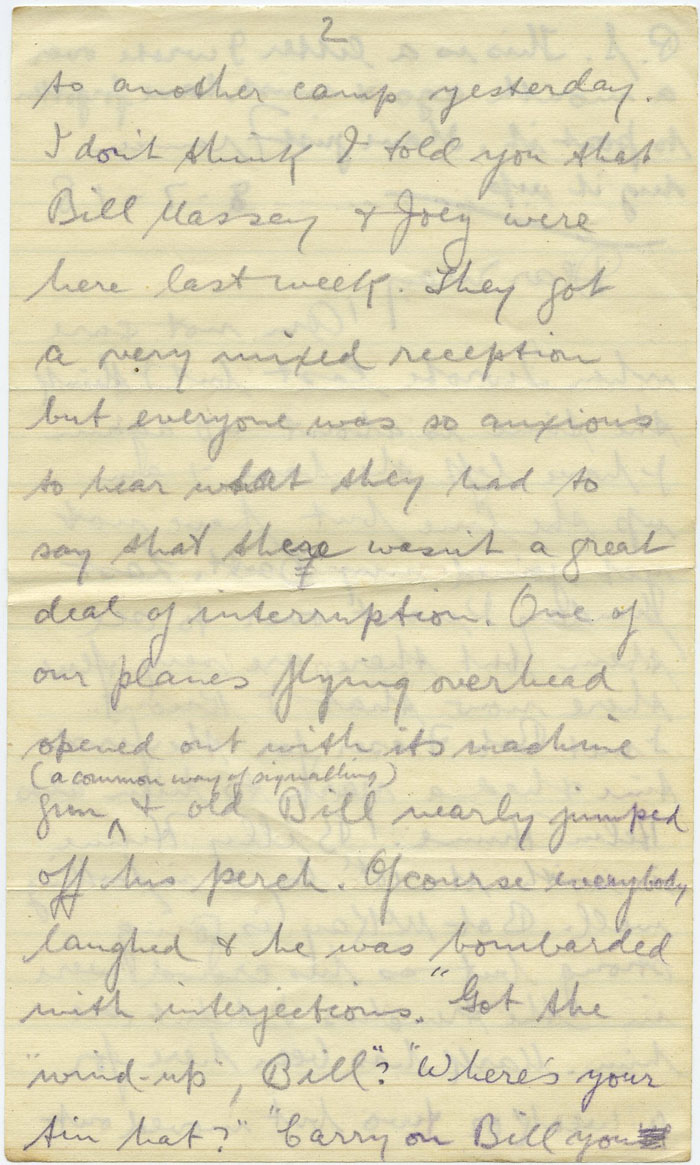 2
to another camp yesterday.
I don't think I told you that
Bill Massey & Joey were
here last week. They got
a very mixed reception
but everyone was so anxious
to hear what they had to
say that there wasn't a great
deal of interruption. One of
our planes flying overhead
opened out with its machine
(a common way of signalling)
gun ^ & old Bill nearly jumped
off his perch. Ofcourse everybody
laughed & he was bombarded
with interjections. "Got the
"wind-up", Bill"? "Where's your
tin hat?" "Carry on Bill you